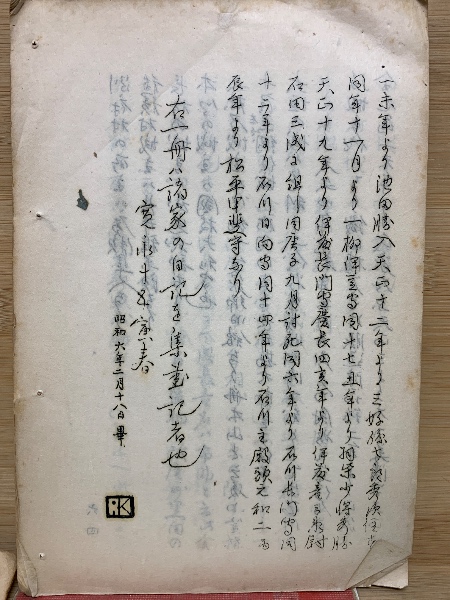 一未年より池田勝入天正十二年より三好孫七郎秀次住ス
同年十一月より一柳伊豆守同十七丑年より羽柴少将秀勝
天正十九年より伊藤長門守慶長四亥年より伊藤彦兵衛尉
石田三成ニ組同庚子九月討死同六年より石川長門守同
十二年より石川日向守同十四年より石川主殿頭元和二丙
辰年より松平甲斐守なり
右一冊ハ諸家の日記を集書記者也
寛永十五寅春
昭和六年二月十八日畢
K
六四